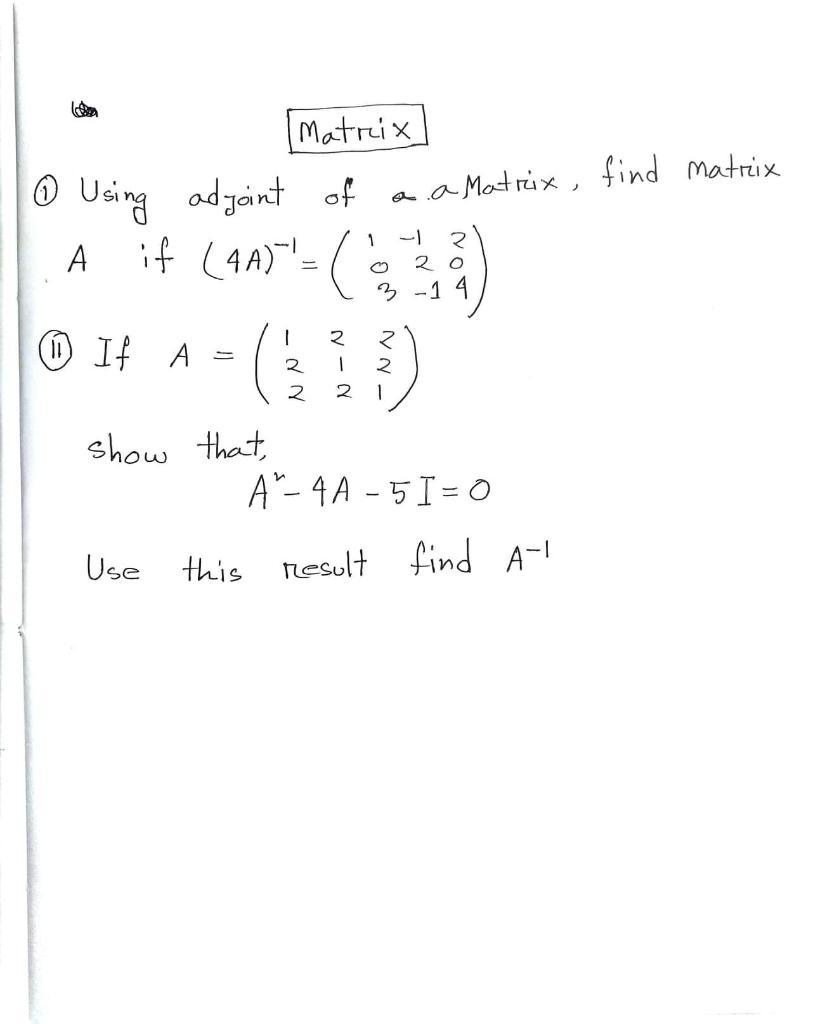 Matrix
① Using adjoint of a a Matrix, find matrix
A if (4A)⁻¹ = ( 1 -1 2
0 2 0
3 -1 4 )
ⅱ If A = ( 1 2 2
2 1 2
2 2 1 )
show that,
A² - 4A - 5I = 0
Use this result find A-1